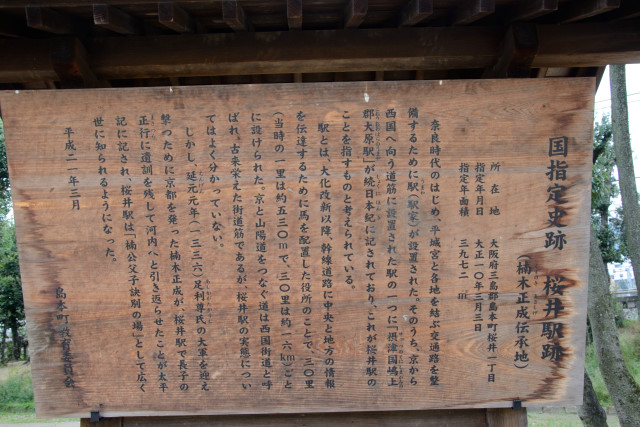 国指定史跡　桜井駅跡
（楠木正成伝承地）
所在地　大阪府三島郡島本町桜井一丁目
指定年月日　大正一〇年三月三日
指定年面積　三九七二㎡
奈良時代のはじめ、平城宮と各地を結ぶ交通路を整
備するために駅（駅家）が設置された。そのうち、京から
西国へ向う道筋に設置された駅の一つに「摂津国嶋上
郡大原駅」が続日本紀に記されており、これが桜井駅の
ことを指すものと考えられている。
駅とは、大化改新以降、幹線道路に中央と地方の情報
を伝達するために馬を配置した役所のことで、三〇里
（当時の一里は約五三〇ｍで、三〇里は約一六ｋｍ）ごと
に設けられた。京と山陽道をつなぐ道は西国街道と呼
ばれ、古来栄えた街道筋であるが、桜井駅の実態につい
てはよく分かっていない。
しかし、延元元年（一三三六）足利尊氏の大軍を迎え
撃つために京都を発った楠木正成が、桜井駅で長子の
正行に遺訓を残して河内へと引き返らせたことが太平
記に記され、桜井駅は「楠公父子訣別の場」として広く
世に知られるようになった。
平成二一年三月
島本町教育委員会